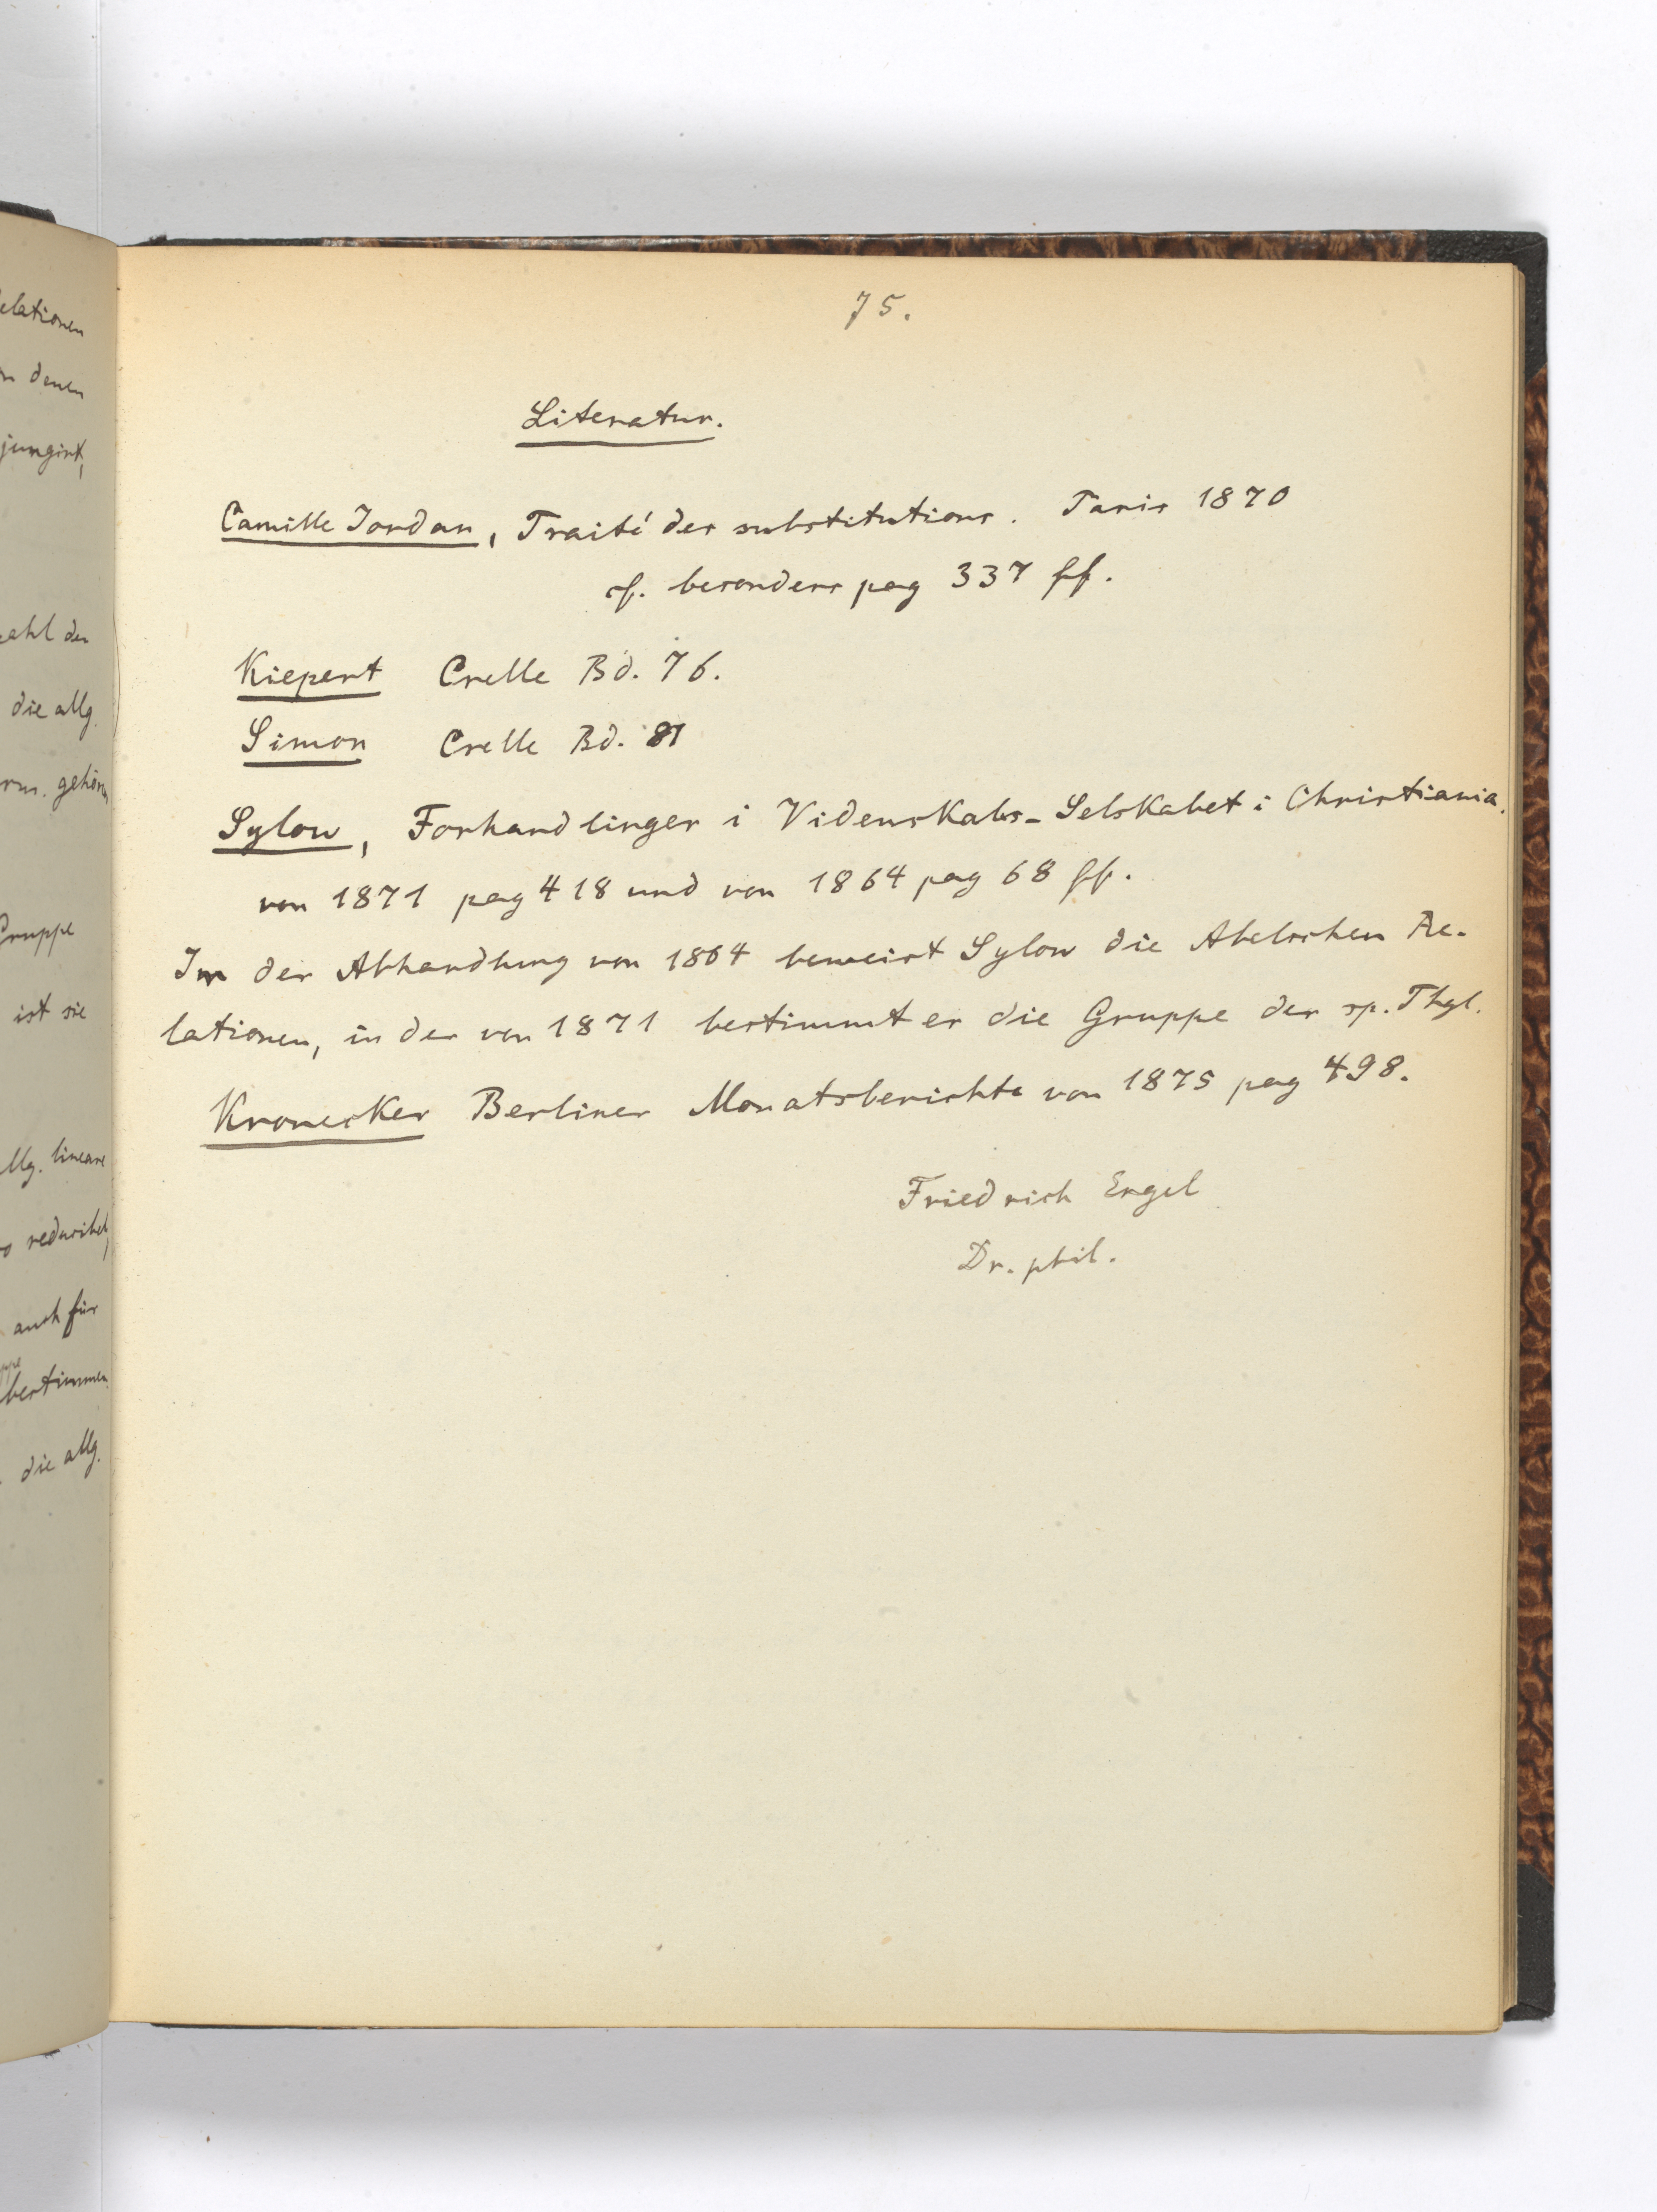 75.
Literatur.
Camille Jordan, Traité des substitutions. Paris 1870
cf. besonders pag 337 ff.
Kiepert Crelle Bd. 76.
Simon Crelle Bd. 81
Sylow, Forhandlinger i Videnskabs-Selskabet i Christiania.
von 1871 pag 418 und von 1864 pag 68 ff.
In der Abhandlung von 1864 beweist Sylow die Abelschen Re-
lationen, in der von 1871 bestimmt er die Gruppe der sp. Thgl.
Kronecker Berliner Monatsberichte von 1875 pag 498.
Friedrich Engel
Dr. phil.
elationen
denen
jungirt,
ahl der
die allg.
gehören
Gruppe
ist sie
allg. lineare
reducibel,
auch für
bestimmen
die allg.